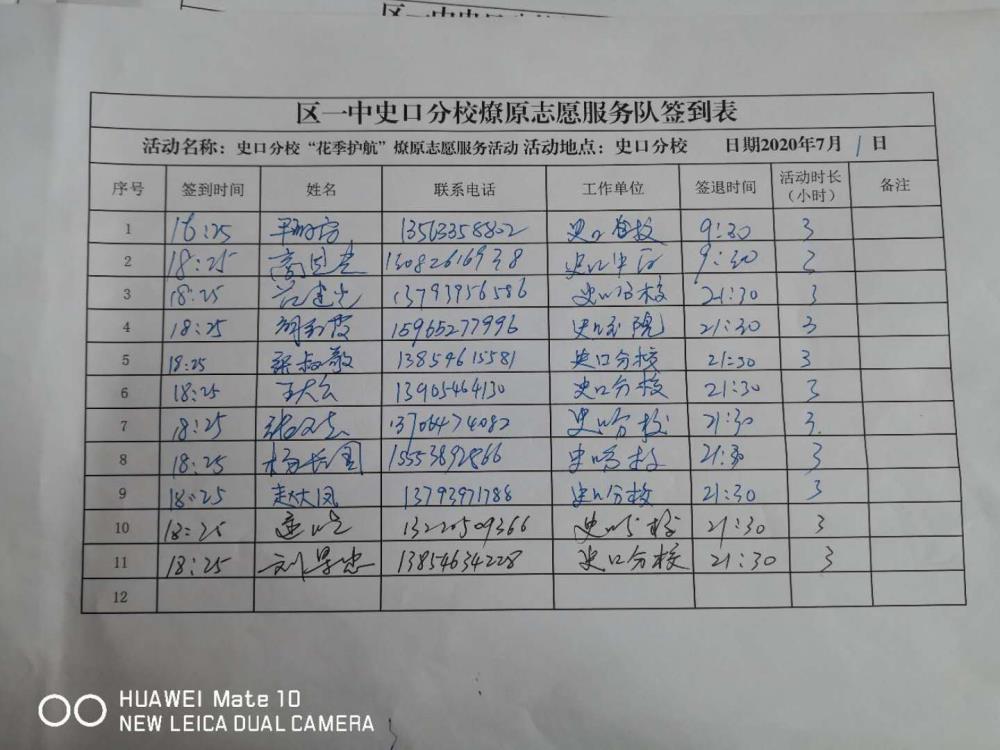 区一中史口分校燎原志愿服务队签到表
活动名称：史口分校“花季护航”燎原志愿服务活动 活动地点：史口分校 日期2020年7月1日
序号 签到时间 姓名 联系电话 工作单位 签退时间 活动时长（小时） 备注
1 16:25 13563358802 史口分校 9:30 3
2 18:25 9:30 3
3 18:25 13793956586 史口分校 21:30 3
4 18:25 15965277996 21:30 3
5 18:25 13854615581 史口分校 21:30 3
6 18:25 13905464130 史口分校 21:30 3
7 18:25 13706474082 史口分校 21:30 3
8 18:25 杨长国 15553892866 史口分校 21:30 3
9 18:25 13793971788 史口分校 21:30 3
10 18:25 13220509366 史口分校 21:30 3
11 18:25 刘景忠 13854634228 史口分校 21:30 3
12
HUAWEI Mate 10
NEW LEICA DUAL CAMERA